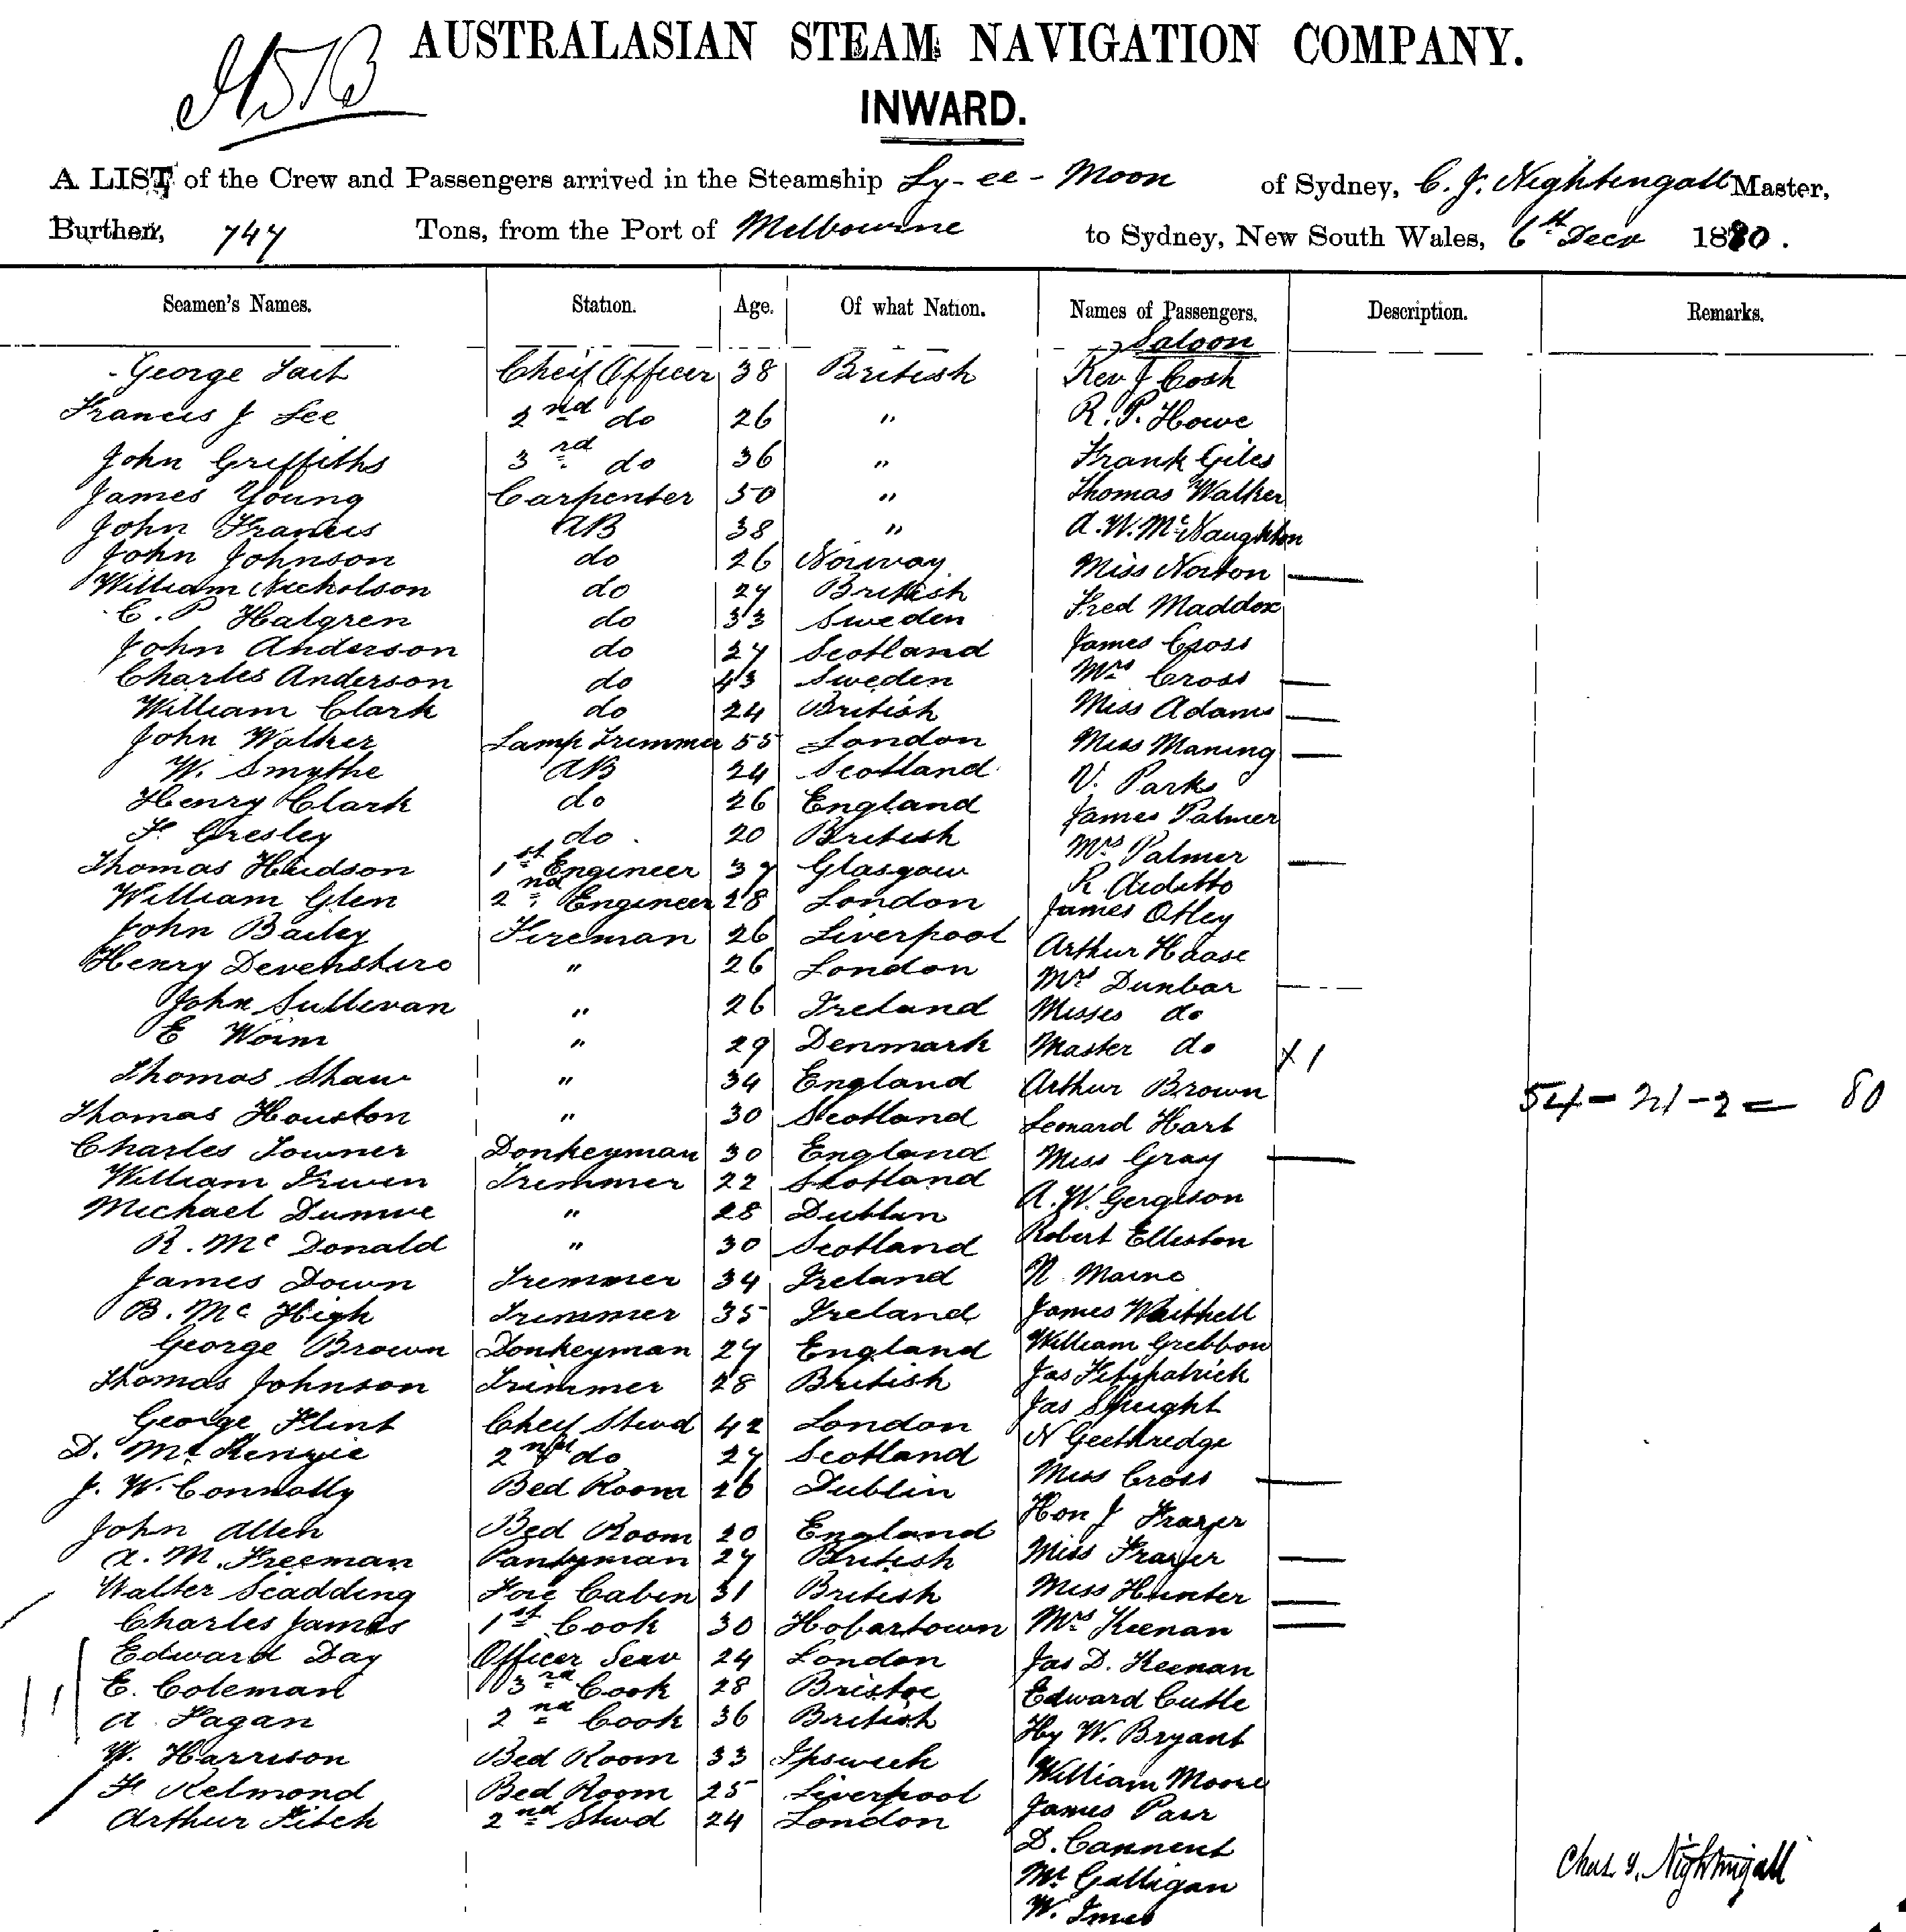 AUSTRALASIAN STEAM NAVIGATION COMPANY.
INWARD.
A LIST of the Crew and Passengers arrived in the Steamship Ly-ee-Moon of Sydney, C. J. Nightingall Master,
Burthen, 747 Tons, from the Port of Melbourne to Sydney, New South Wales, 6th Decr 1880.
Seamen's Names. Station. Age. Of what Nation. Names of Passengers. Description. Remarks.
Saloon
George Tait Cheif Officer 38 British Rev J Cosh
Francis J Lee 2nd do 26 " R. P. Howe
John Griffiths 3rd do 36 " Frank Giles
James Young Carpenter 50 " Thomas Walker
John Francis AB 38 " A. W. McNaughton
John Johnson do 26 Norway Miss Norton
William Nicholson do 27 British Fred Maddox
C. P Halgren do 33 Sweden James Cross
John Anderson do 27 Scotland Mrs Cross
Charles Anderson do 43 Sweden Miss Adams
William Clark do 24 British Miss Maning
John Walker Lamp Trimmer 55 London V. Parks
W. Smythe AB 24 Scotland James Palmer
Henry Clark do 26 England Mrs Palmer
F. Gresley do 20 British R.
Thomas Hudson 1st Engineer 37 Glasgow James Otley
William Glen 2nd Engineer 28 London Arthur Haase
John Bailey Fireman 26 Liverpool Mrs Dunbar
Henry Devenshire " 26 London Misses do
John Sullivan " 26 Ireland Master do X1
E Worm " 29 Denmark Arthur Brown
Thomas Shaw " 34 England Leonard Hart 54-21-2= 80
Thomas Houston " 30 Scotland Miss Gray
Charles Towner Donkeyman 30 England A. W. Gergison
William Irwin Trimmer 22 Scotland Robert Elleston
Michael " 28 Dublin N. Marne
R. Mc Donald " 30 Scotland James Whithell
James Down Trimmer 34 Ireland William Grebbon
B. Mc High Trimmer 35 Ireland Jas Fitzpatrick
George Brown Donkeyman 27 England Jas Speight
Thomas Johnson Trimmer 28 British N Geethredge
George Flint Cheif Stwd 42 London Miss Cross
D. McKenzie 2nd do 27 Scotland Hon J Frazer
J. W. Connolly Bed Room 26 Dublin Miss Frazer
John Allen Bed Room 20 England Miss Hunter
A. M. Freeman Pantryman 27 British Mrs Keenan
Walter Scadding Fore Cabin 31 British Jas D. Keenan
Charles James 1st Cook 30 Hobartown Edward Cutle
Edward Day Officer Serv 24 London Hy W. Bryant
E. Coleman 3rd Cook 28 Bristoe William Moore
A. Fagan 2nd Cook 36 British James Parr
W. Harrison Bed Room 33 Ipswich D. Cannent
F. Relmond Bed Room 25 Liverpool Mr Galligan
Arthur Fitch 2nd Stwd 24 London W. Imes
Chas. J. Nightingall